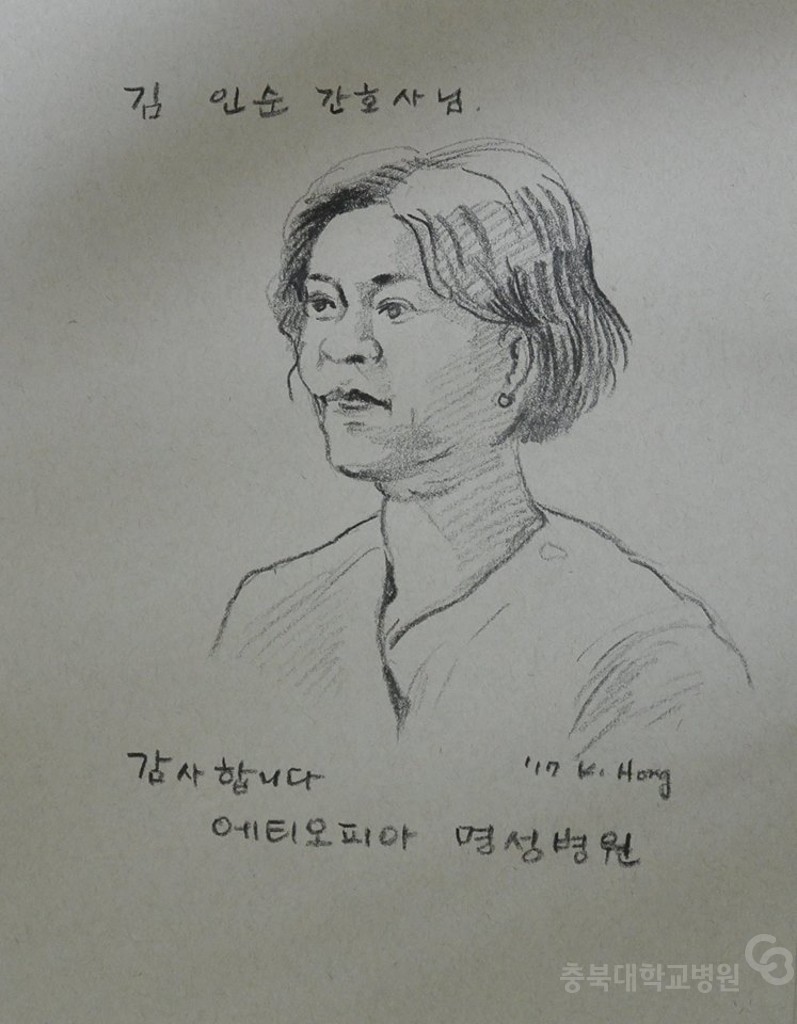 김 인순 간호사님.
감사합니다
'17 K. Hong
에티오피아 명성병원
충북대학교병원